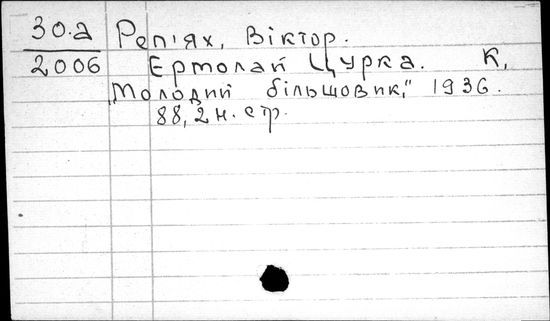 30.а Реп'ях, Віктор.
2006 Єрмолай Цурка. К,
„Молодий більшовик," 1936.
88, 2 н. стр.